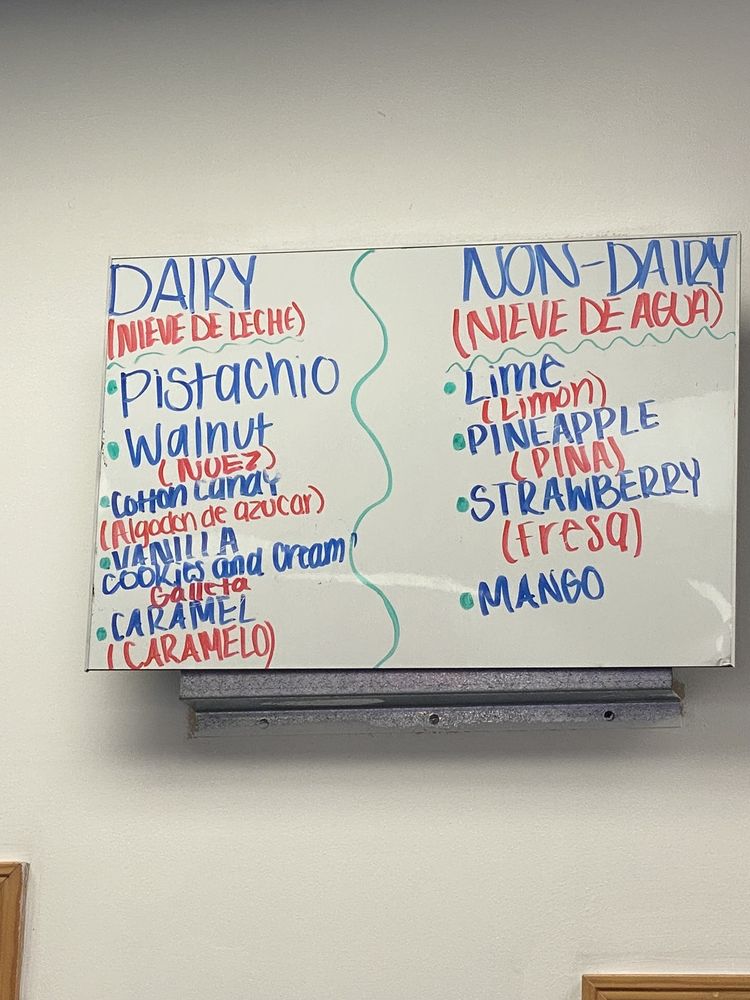 DAIRY
(NIEVE DE LECHE)
Pistachio
Walnut
(NUEZ)
Cotton Candy
(Algodon de azucar)
VANILLA
cookies and cream
Galleta
CARAMEL
(CARAMELO)
NON-DAIRY
(NIEVE DE AGUA)
Lime
(Limon)
PINEAPPLE
(PINA)
STRAWBERRY
(Fresa)
MANGO